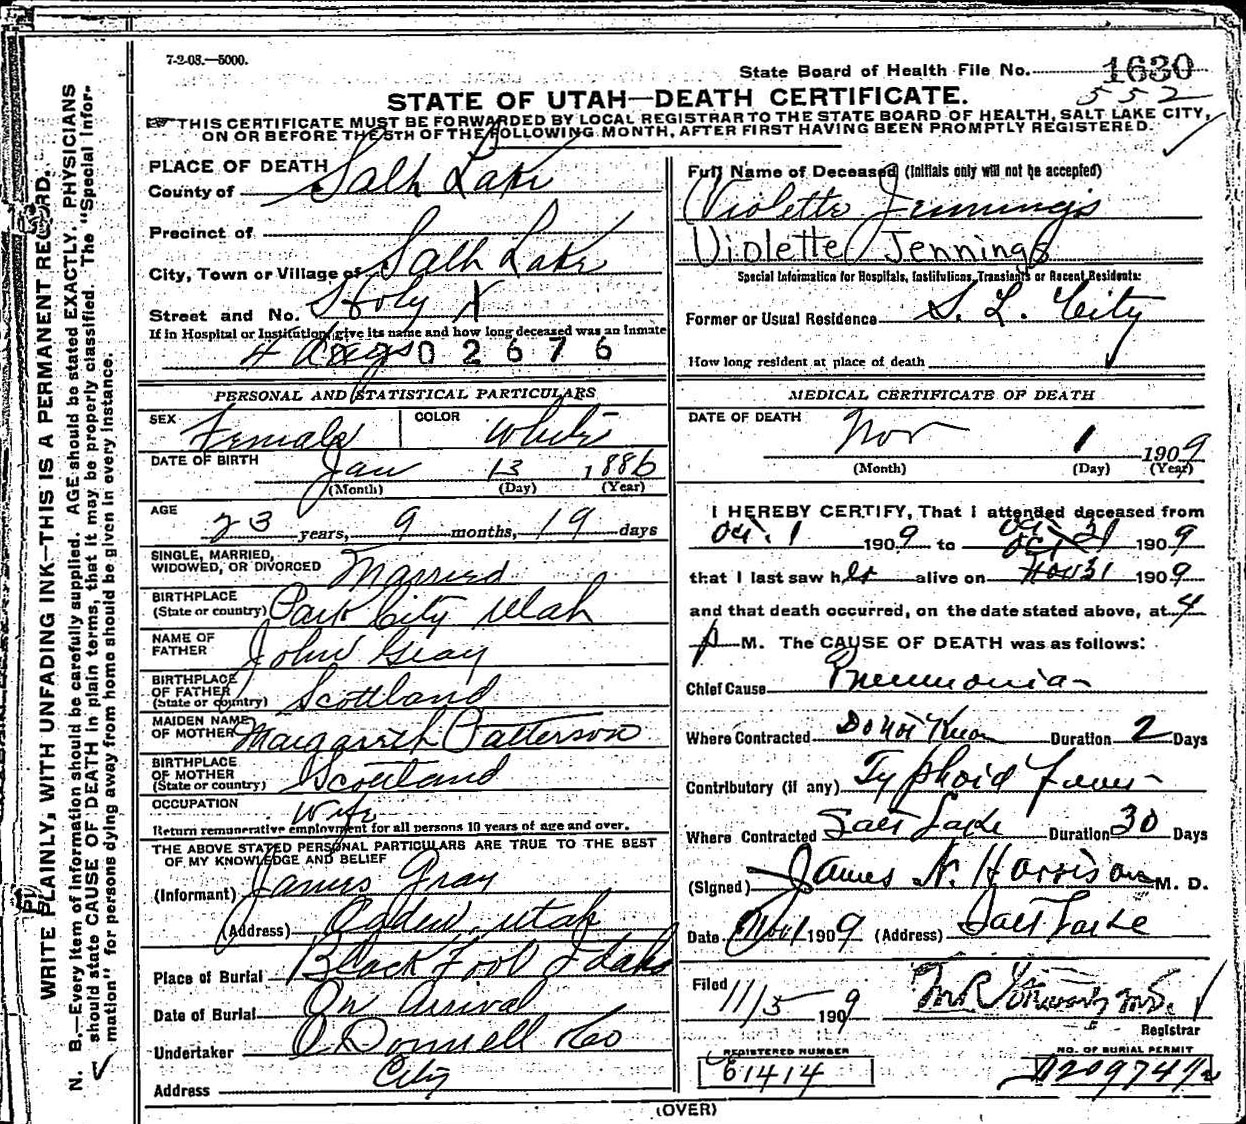 7-2-08.—5000.
State Board of Health File No. 1630
552
STATE OF UTAH—DEATH CERTIFICATE.
THIS CERTIFICATE MUST BE FORWARDED BY LOCAL REGISTRAR TO THE STATE BOARD OF HEALTH, SALT LAKE CITY,
ON OR BEFORE THE 5TH OF THE FOLLOWING MONTH, AFTER FIRST HAVING BEEN PROMPTLY REGISTERED.
PLACE OF DEATH
County of Salt Lake
Precinct of
City, Town or Village of Salt Lake
Street and No. Holy X
If in Hospital or Institution, give its name and how long deceased was an Inmate
4 days 02676
PERSONAL AND STATISTICAL PARTICULARS
SEX Female COLOR White
DATE OF BIRTH Jan 13 1886
(Month) (Day) (Year)
AGE
23 years, 9 months, 19 days
SINGLE, MARRIED,
WIDOWED, OR DIVORCED Married
BIRTHPLACE
(State or country) Park City Utah
NAME OF
FATHER John Gray
BIRTHPLACE
OF FATHER
(State or country) Scottland
MAIDEN NAME
OF MOTHER Margareth Patterson
BIRTHPLACE
OF MOTHER
(State or country) Scottland
OCCUPATION Wife
Return remunerative employment for all persons 10 years of age and over.
THE ABOVE STATED PERSONAL PARTICULARS ARE TRUE TO THE BEST
OF MY KNOWLEDGE AND BELIEF
(Informant) James Gray
(Address) Ogden, Utah
Place of Burial Black Foot Idaho
Date of Burial On Arrival
Undertaker O Donnell & Co
Address City
Full Name of Deceased (Initials only will not be accepted)
Violette Jennings
Violette Jennings
Special Information for Hospitals, Institutions, Transients or Recent Residents:
Former or Usual Residence S. L. City
How long resident at place of death
MEDICAL CERTIFICATE OF DEATH
DATE OF DEATH Nov 1 1909
(Month) (Day) (Year)
I HEREBY CERTIFY, That I attended deceased from
Oct. 1 1909 to Oct 31 1909
that I last saw her alive on Nov 31 1909
and that death occurred, on the date stated above, at 4
p M. The CAUSE OF DEATH was as follows:
Chief Cause Pneumonia
Where Contracted Do not Know Duration 2 Days
Contributory (if any) Typhoid Fever
Where Contracted Salt Lake Duration 30 Days
(Signed) James N. Harrison M. D.
Date Nov 1 1909 (Address) Salt Lake
Filed 11/5 1909
Registrar
REGISTERED NUMBER
61414
NO. OF BURIAL PERMIT
(OVER)
WRITE PLAINLY, WITH UNFADING INK—THIS IS A PERMANENT RECORD.
N. B.—Every item of information should be carefully supplied. AGE should be stated EXACTLY. PHYSICIANS
should state CAUSE OF DEATH in plain terms, that it may be properly classified. The "Special Infor-
mation" for persons dying away from home should be given in every instance.